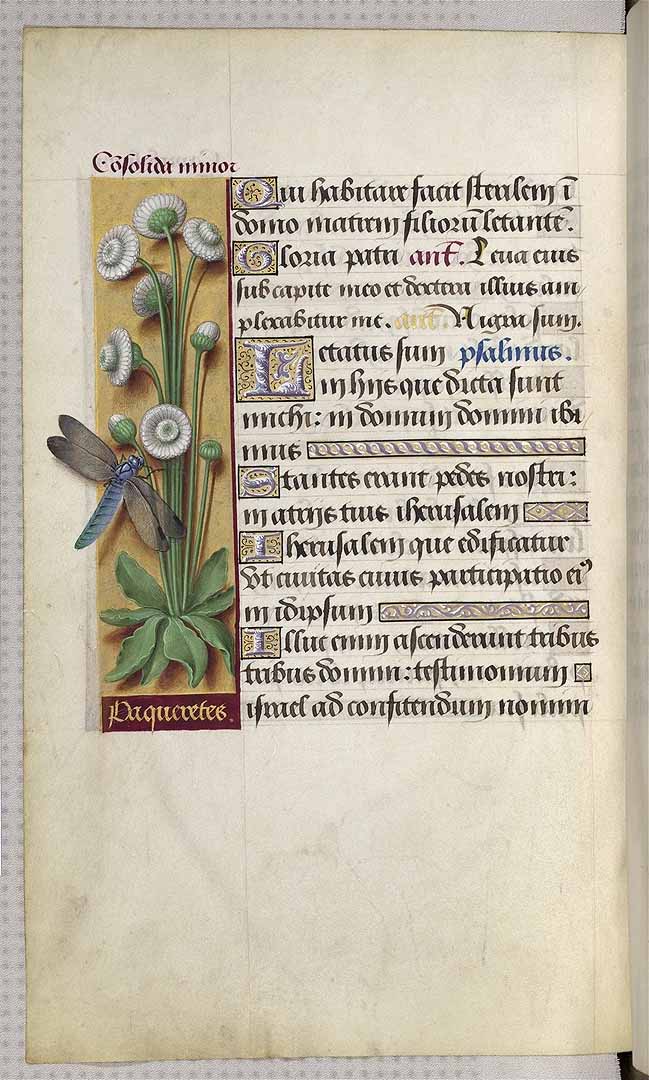 Cōsolida minor
Qui habitare facit sterilem ī
domo matrem filiorū letantē.
Gloria patri ant̄. Leua eius
sub capite meo et dextera illius am
plexabitur me. ant̄. Nigra sum.
Letatus sum psalmus.
in hijs que dicta sunt
michi: in domum domini ibi
mus
Stantes erant pedes nostri:
in atrijs tuis iherusalem
Iherusalem que edificatur
vt ciuitas cuius participatio eiꝰ
in idipsum
Illuc enim ascenderunt tribus
tribus domini: testimonium
israel ad confitendum nomini
Paqueretes.